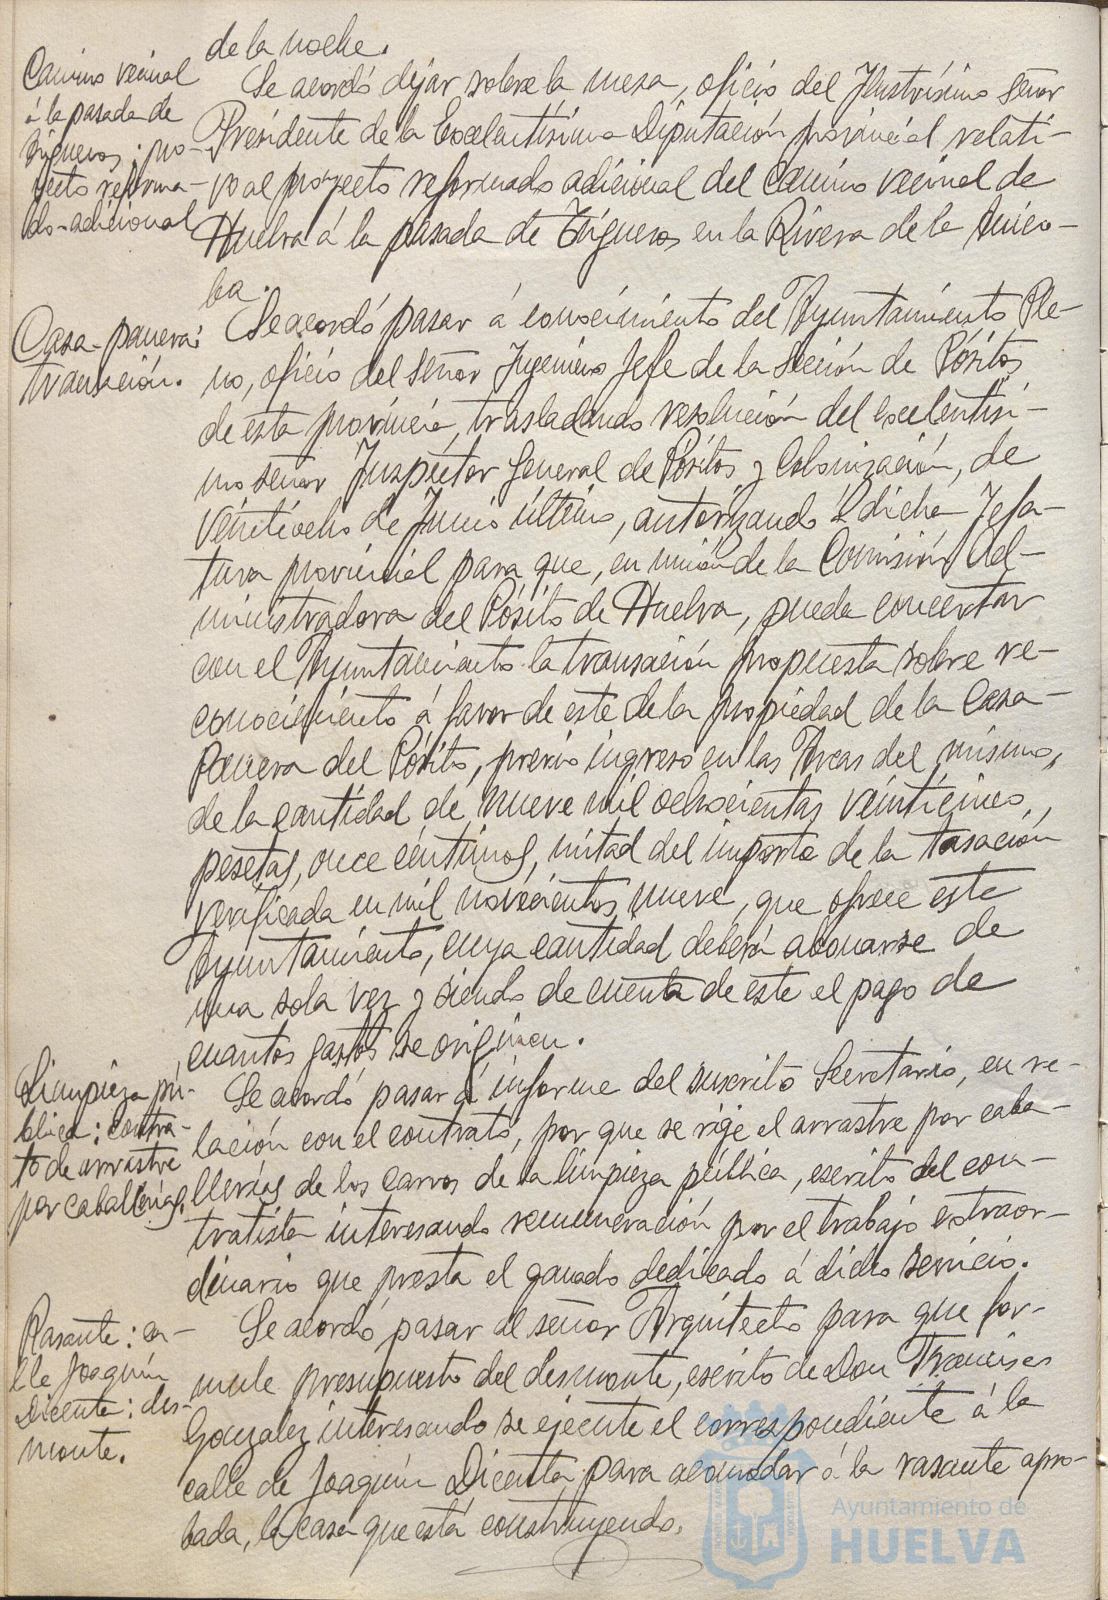 de la noche.
Camino vecinal
á la pasada de
Trigueros: pro-
yecto reforma-
do-adicional
Se acordó dejar sobre la mesa, oficio del Ilustrísimo Señor
Presidente de la Excelentísima Diputación provincial relati-
vo al proyecto reformado adicional del Camino vecinal de
Huelva á la pasada de Trigueros en la Rivera de la Anico-
ba.
Casa-panera:
transación.
Se acordó pasar á conocimiento del Ayuntamiento Ple-
no, oficio del Señor Ingeniero Jefe de la Sección de Pósitos
de esta provincia, trasladando resolución del excelentísi-
mo señor Inspector General de Pósitos y Colonización, de
veintiocho de Junio último, autorizando á dicha Jefa-
tura provincial para que, en unión de la Comisión Ad-
ministradora del Pósito de Huelva, pueda concertar
con el Ayuntamiento la transación propuesta sobre re-
conocimiento á favor de este de la propiedad de la Casa-
Panera del Pósito, previo ingreso en las Arcas del mismo,
de la cantidad de nueve mil ochocientas veinticinco
pesetas, once céntimos, mitad del importe de la tasación
verificada en mil novecientos nueve, que ofrece este
Ayuntamiento, cuya cantidad deberá abonarse de
una sola vez y siendo de cuenta de este el pago de
cuantos gastos se originen.
Limpieza pú-
blica: contra-
to de arrastre
por caballerías.
Se acordó pasar á informe del suscrito Secretario, en re-
lación con el contrato, por que se rige el arrastre por caba-
llerías de los carros de la limpieza pública, escrito del con-
tratista interesando remuneración por el trabajo extraor-
dinario que presta el ganado dedicado á dicho servicio.
Rasante: ca-
lle Joaquín
Dicenta: des-
monte.
Se acordó pasar al señor Arquitecto para que for-
mule presupuesto del desmonte, escrito de Don Francisco
Gonzalez interesando se ejecute el correspondiente á la
calle de Joaquín Dicenta para acomodar á la rasante apro-
bada, la casa que está construyendo.
Ayuntamiento de
HUELVA